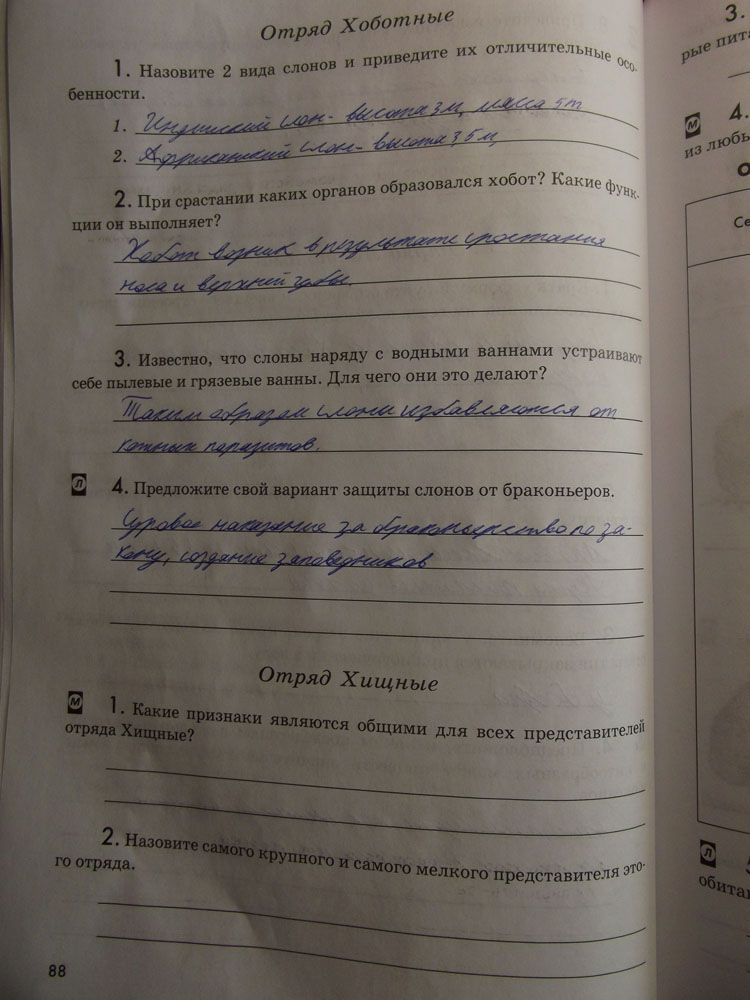 Отряд Хоботные
1. Назовите 2 вида слонов и приведите их отличительные осо-
бенности.
1. Индийский слон - высота 3 м, масса 5 т
2. Африканский слон - высота 3,5 м,
2. При срастании каких органов образовался хобот? Какие функ-
ции он выполняет?
Хобот возник в результате сростания
носа и верхней губы.
3. Известно, что слоны наряду с водными ваннами устраивают
себе пылевые и грязевые ванны. Для чего они это делают?
Таким образом слоны избавляются от
кожных паразитов.
Л 4. Предложите свой вариант защиты слонов от браконьеров.
Суровое наказание за браконьерство по за-
кону, создание заповедников
Отряд Хищные
М 1. Какие признаки являются общими для всех представителей
отряда Хищные?
2. Назовите самого крупного и самого мелкого представителя это-
го отряда.
88
3.
рые пита
М 4.
из любы
Се
Л
обита